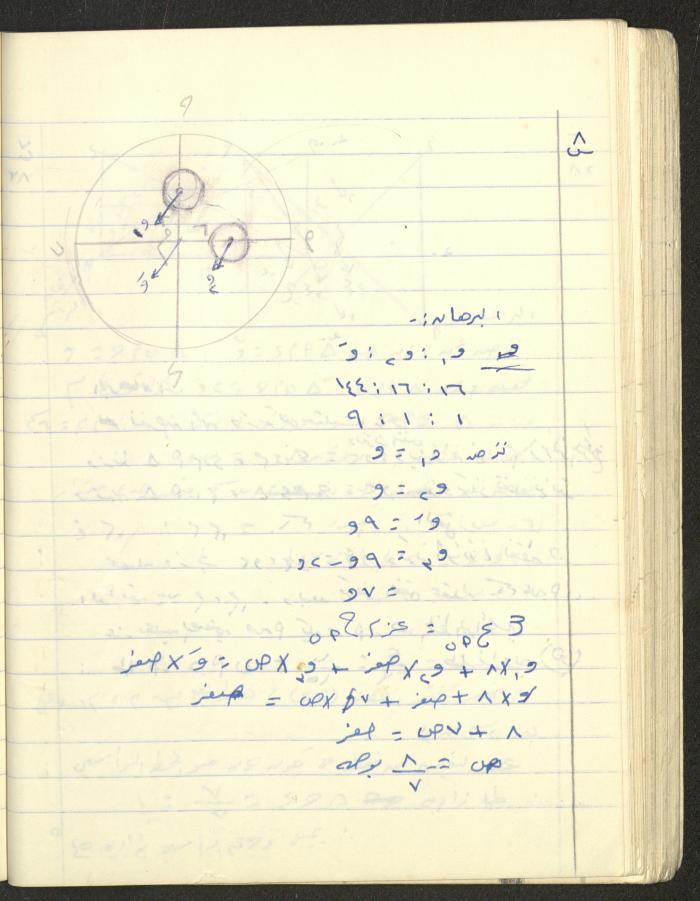 س ٨
البرهان :-
و١ : و٢ : وَ
١٦ : ١٦ : ١٤٤
١ : ١ : ٩
نفرض و١ = و
و٢ = و
وَ = ٩و
و٣ = ٩و - ٢و
= ٧و
و١ × ٨ + و٢ × صفر + و٣ × ص = وَ × صفر
و × ٨ + صفر + ٧و × ص = صفر
٨ + ٧ص = صفر
ص = -٨/٧ بوصه